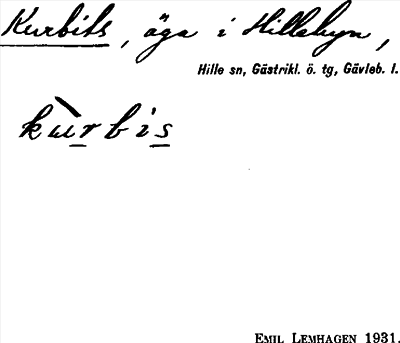 Kurbits, äga i Hillebyn,
Hille sn, Gästrikl. ö. tg, Gävleb. l.
kùrbis
EMIL LEMHAGEN 1931.